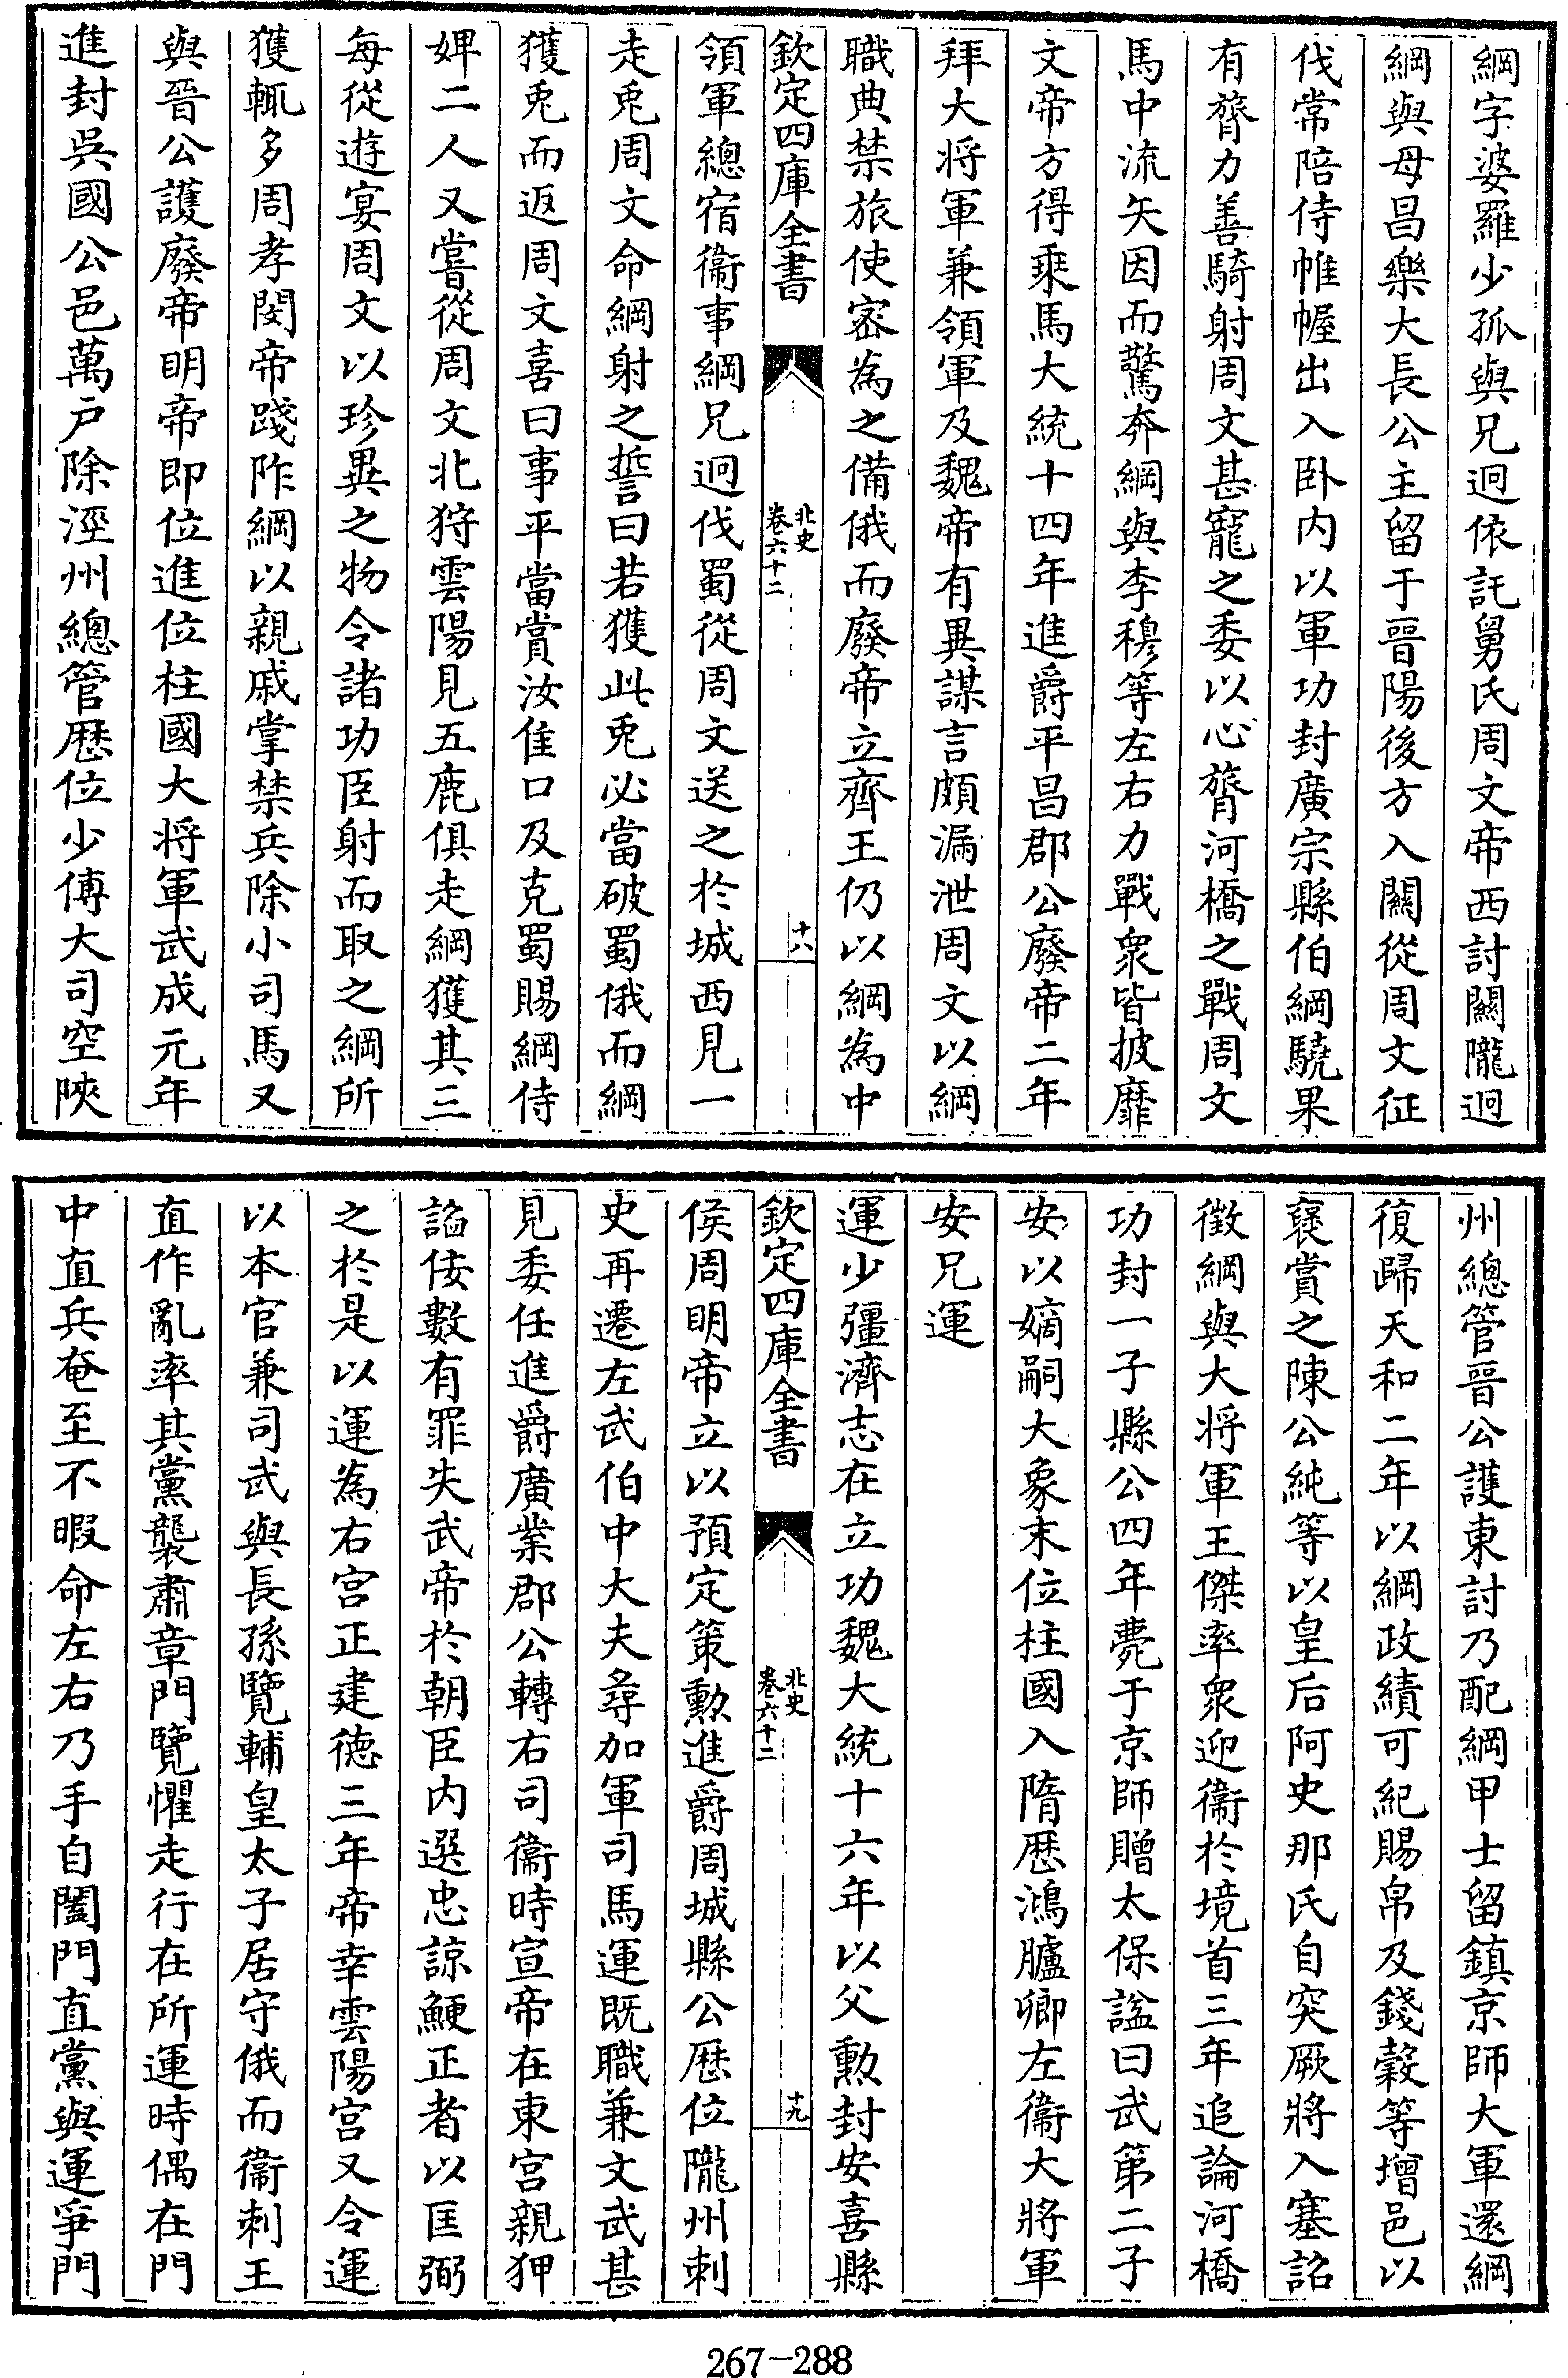 綱字婆羅少孤與兄迥依託舅氏周文帝西討關隴迥
綱與母昌樂大長公主留于晉陽後方入關從周文征
伐常陪侍帷幄出入卧内以軍功封廣宗縣伯綱驍果
有膂力善騎射周文甚寵之委以心膂河橋之戰周文
馬中流矢因而驚奔綱與李穆等左右力戰衆皆披靡
文帝方得乘馬大統十四年進爵平昌郡公廢帝二年
拜大将軍兼領軍及魏帝有異謀言頗漏泄周文以綱
職典禁旅使宻為之備俄而廢帝立齊王仍以綱為中
欽定四庫全書
北史
卷六十二
十八
領軍總宿衞事綱兄迥伐蜀從周文送之於城西見一
走兎周文命綱射之誓曰若獲此兎必當破蜀俄而綱
獲兎而返周文喜曰事平當賞汝佳口及克蜀賜綱侍
婢二人又嘗從周文北狩雲陽見五鹿俱走綱獲其三
每從遊宴周文以珍異之物令諸功臣射而取之綱所
獲輒多周孝閔帝踐阼綱以親戚掌禁兵除小司馬又
與晉公護廢帝明帝即位進位柱國大将軍武成元年
進封吳國公邑萬户除涇州總管歴位少傅大司空陝
州總管晉公護東討乃配綱甲士留鎮京師大軍還綱
復歸天和二年以綱政績可紀賜帛及錢穀等增邑以
褒賞之陳公純等以皇后阿史那氏自突厥將入塞詔
徵綱與大将軍王傑率衆迎衞於境首三年追論河橋
功封一子縣公四年薨于京師贈太保諡曰武第二子
安以嫡嗣大象末位柱國入隋歴鴻臚卿左衞大將軍
安兄運
運少彊濟志在立功魏大統十六年以父勲封安喜縣
欽定四庫全書
北史
卷六十二
十九
侯周明帝立以預定策勲進爵周城縣公歴位隴州刺
史再遷左武伯中大夫尋加軍司馬運既職兼文武甚
見委任進爵廣業郡公轉右司衞時宣帝在東宫親狎
諂佞數有罪失武帝於朝臣内選忠諒鯁正者以匡弼
之於是以運為右宫正建徳三年帝幸雲陽宫又令運
以本官兼司武與長孫覽輔皇太子居守俄而衞刺王
直作亂率其黨襲肅章門覽懼走行在所運時偶在門
中直兵奄至不暇命左右乃手自闔門直黨與運爭門
267-288